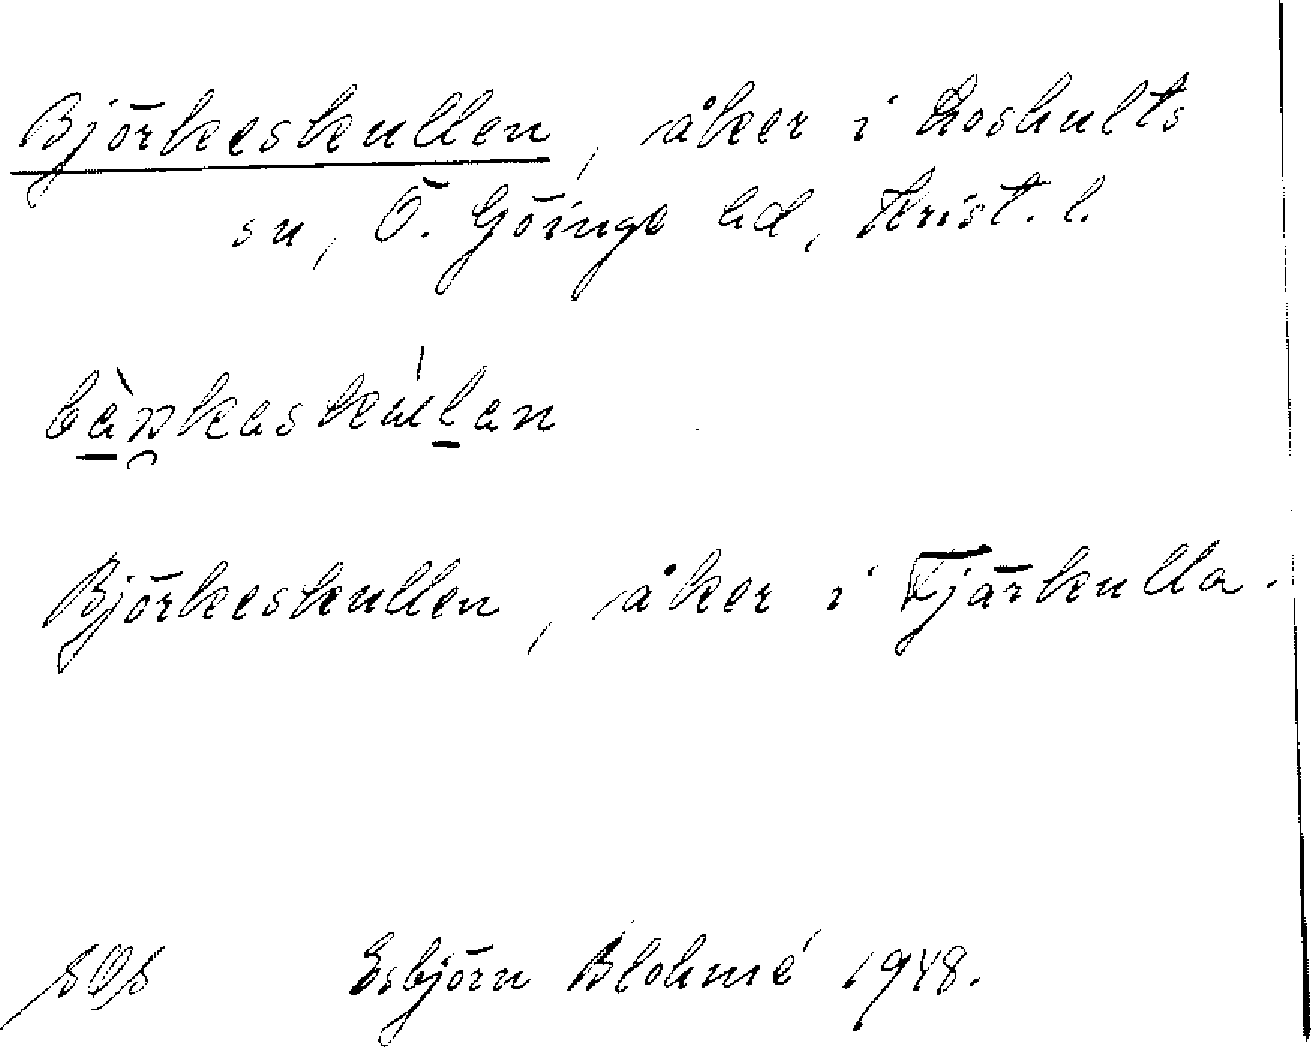 Björkeskullen, åker i Loshults
sn, Ö. Göinge hd, Krist. l.
Björkeskullen, åker i Tjärkulla.
Esbjörn Blohmé 1948.